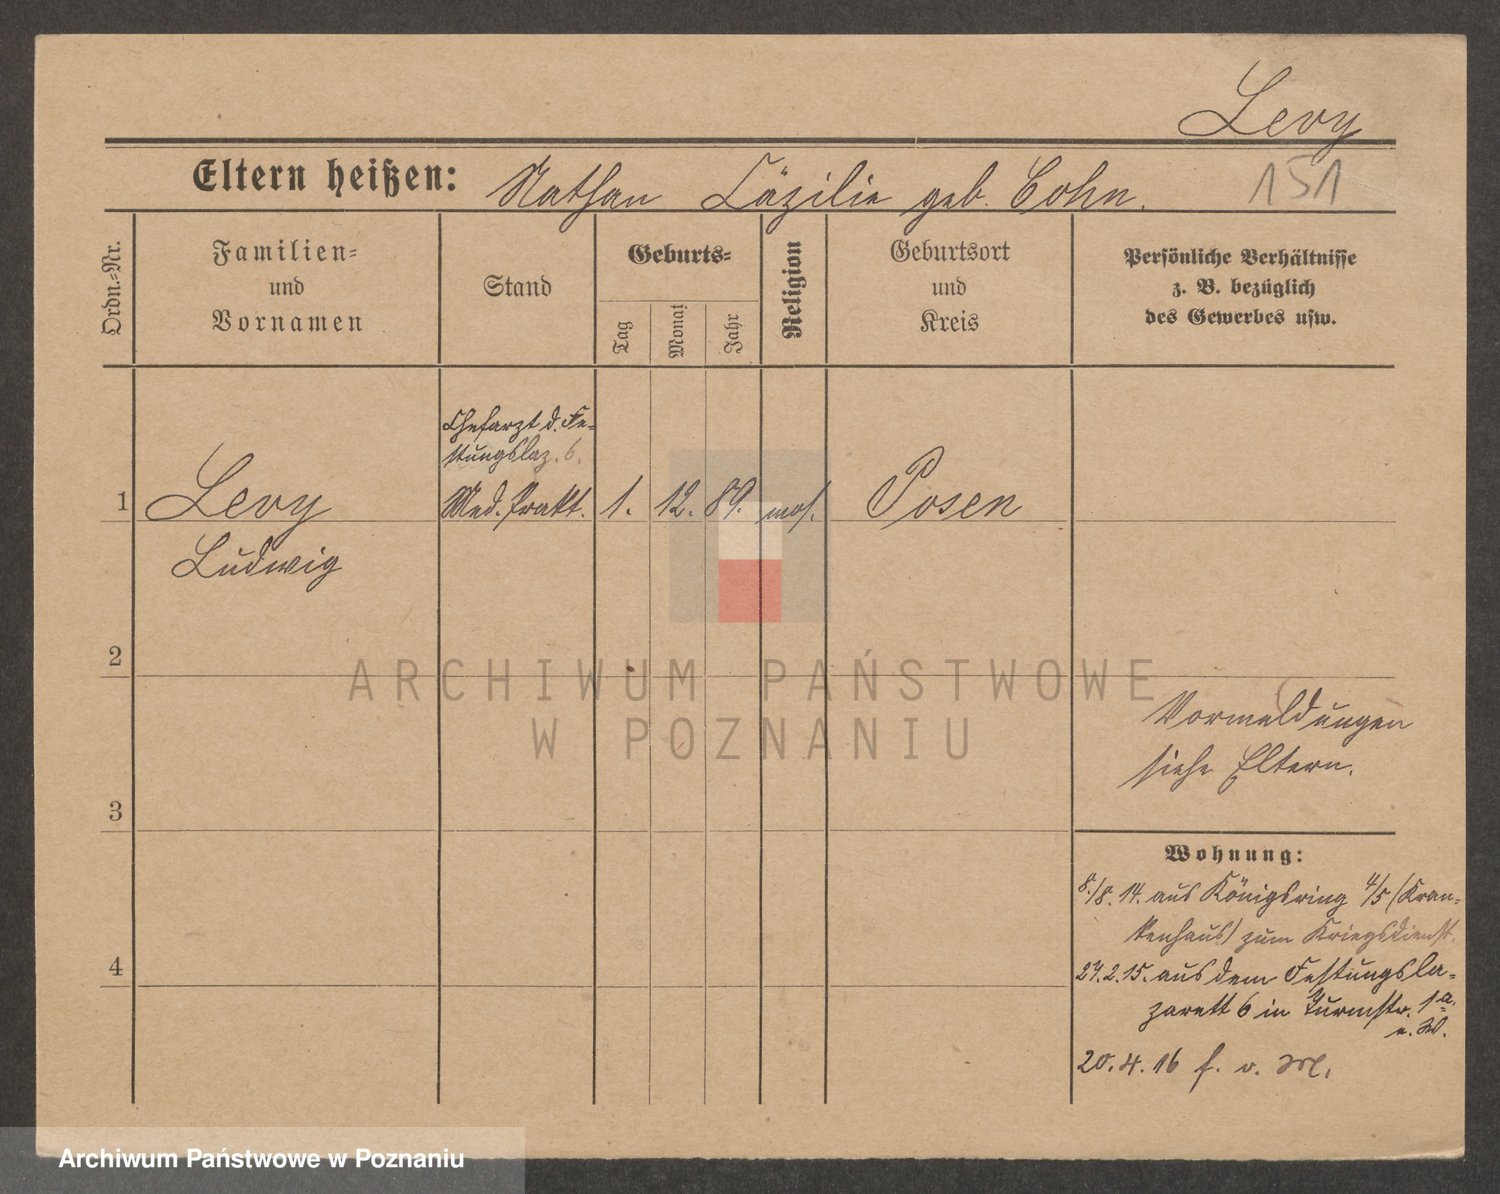 Levy
151
Eltern heißen: Nathan Cäzilie geb. Cohn.
Ordn.-Nr.
Familien-
und
Vornamen
Stand
Geburts-
Tag
Monat
Jahr
Religion
Geburtsort
und
Kreis
Persönliche Verhältnisse
z. B. bezüglich
des Gewerbes usw.
Chefarzt d. Fe-
stungslaz. 6.
1 Levy Med. Prakt. 1. 12. 89. mos. Posen
Ludwig
2
ARCHIWUM PAŃSTWOWE
W POZNANIU
Vormeldungen
siehe Eltern.
3
Wohnung:
8./8. 14. aus Königsring 4/5 (Kran-
kenhaus) zum Kriegsdienst.
4
27.2.15. aus dem Festungsla-
zarett 6 in Turmstr. 1a.
e. W.
20.4.16 f. v. M.
Archiwum Państwowe w Poznaniu